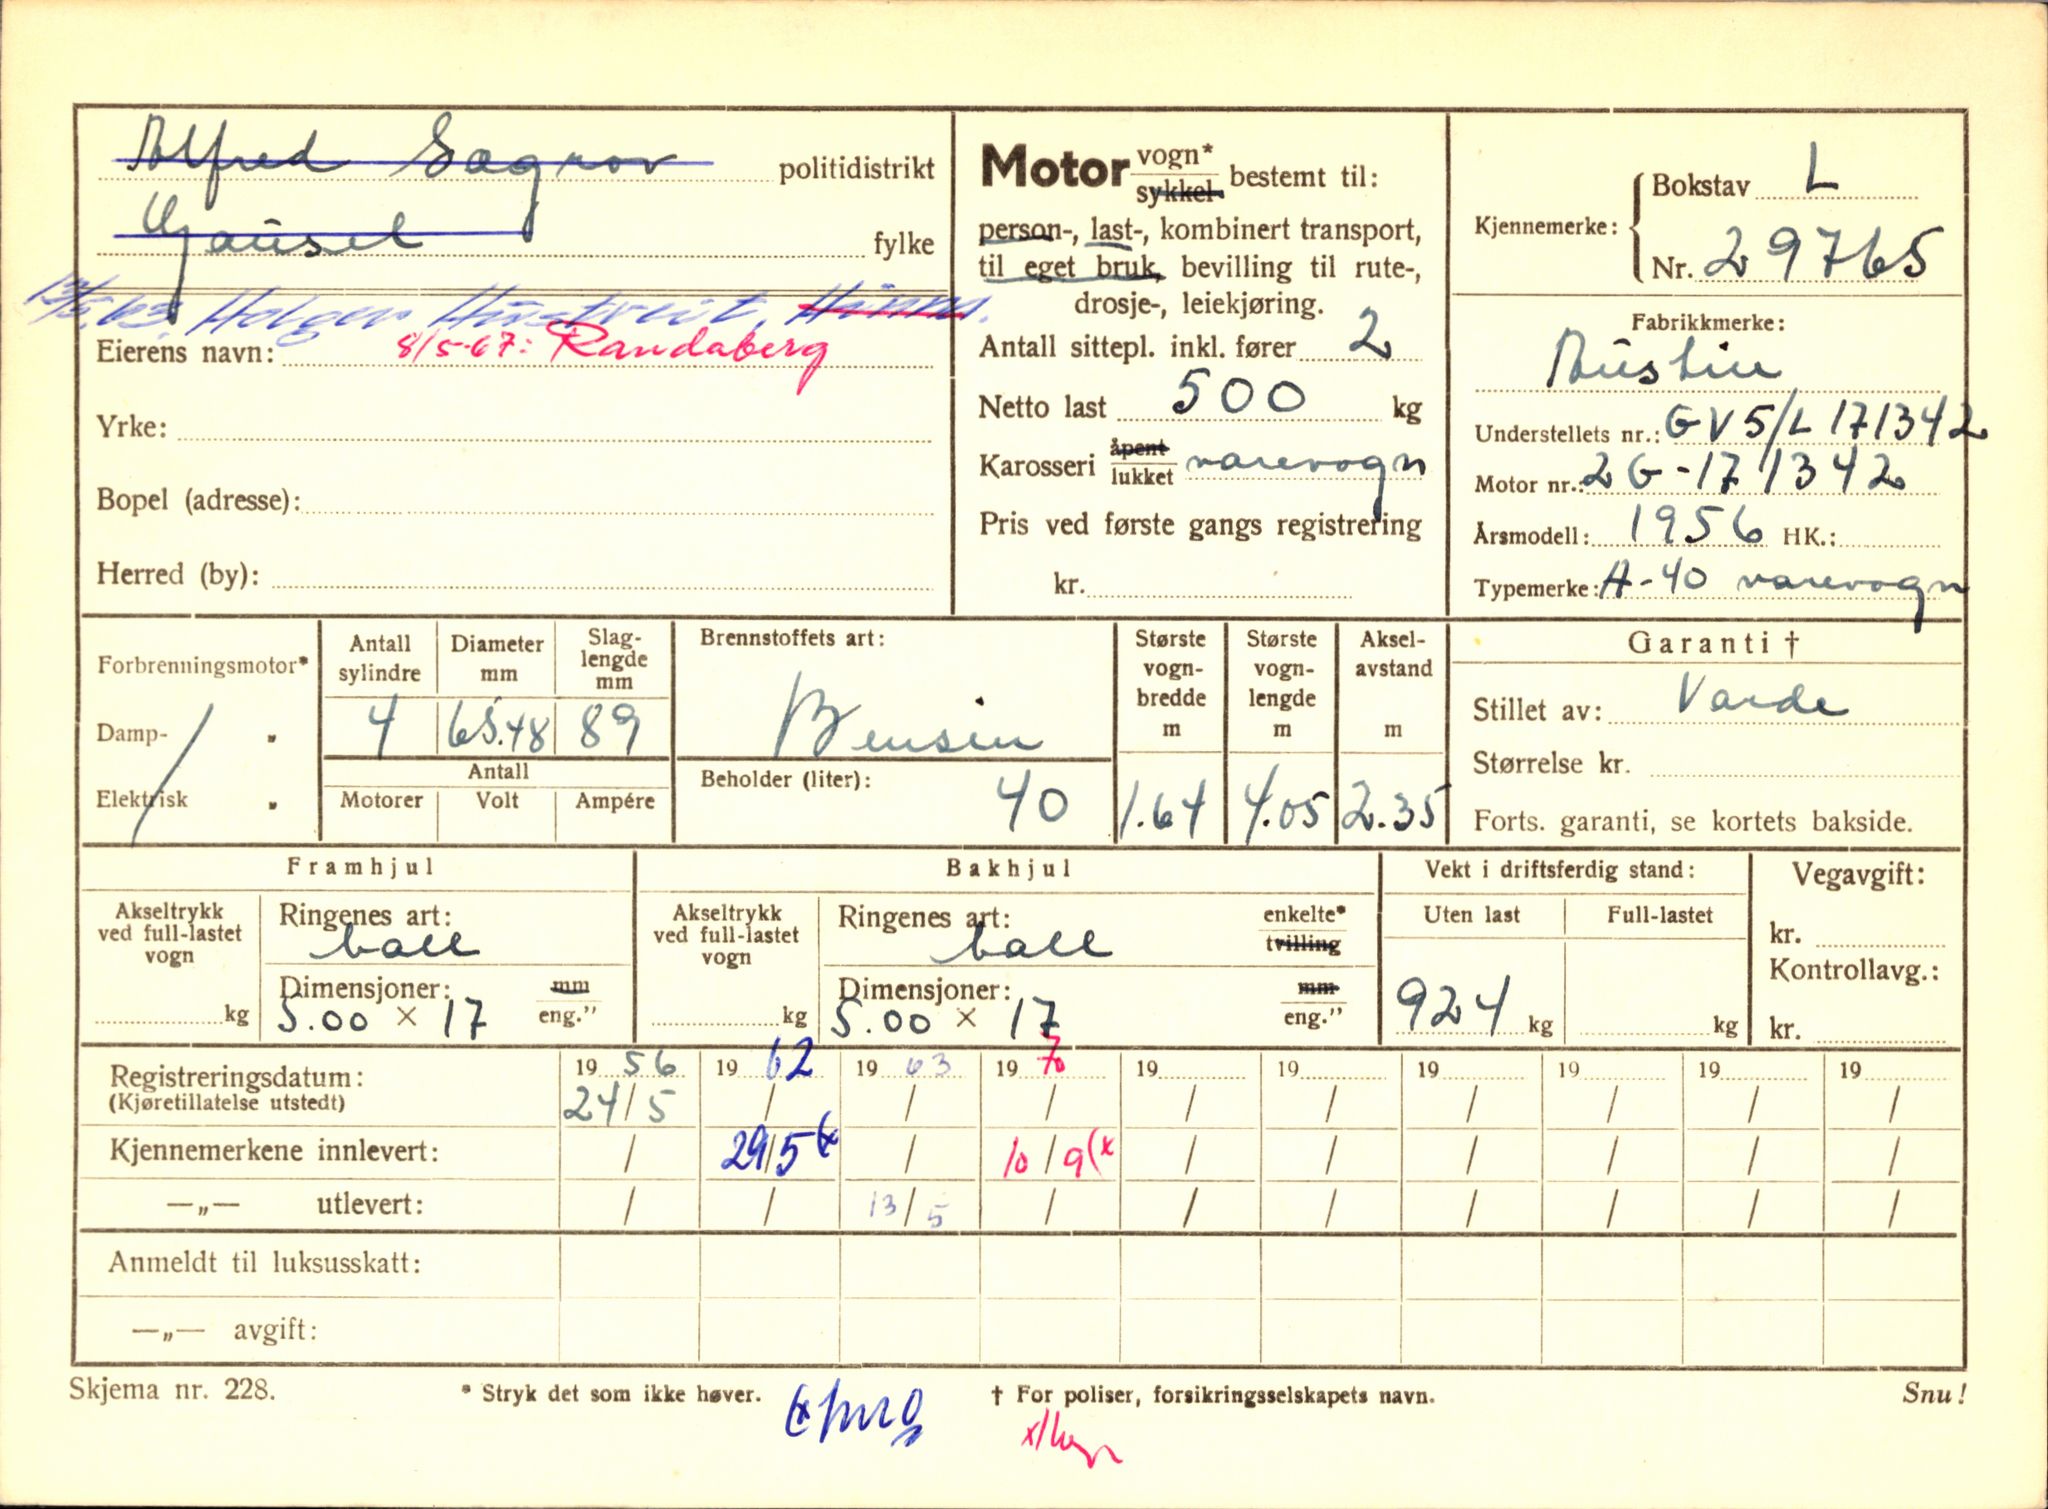 Alfred Sagrov politidistrikt
Gausel fylke
13/5.63. Holger Hustveit, Hinna.
Eierens navn: 8/5-67: Randaberg
Yrke:
Bopel (adresse):
Herred (by):
Motor vogn* sykkel bestemt til:
person-, last-, kombinert transport,
til eget bruk, bevilling til rute-,
drosje-, leiekjøring.
Antall sittepl. inkl. fører 2
Netto last 500 kg
Karosseri åpent lukket varevogn
Pris ved første gangs registrering
kr.
Kjennemerke: Bokstav L
Nr. 29765
Fabrikkmerke:
Austin
Understellets nr.: GV5/L 171342
Motor nr.: 2G-171342
Årsmodell: 1956 HK.:
Typemerke: A-40 varevogn
Forbrenningsmotor*
Damp- "
Elektrisk "
Antall sylindre 4
Diameter mm 65.48
Slaglengde mm 89
Antall
Motorer Volt Ampére
Brennstoffets art:
Bensin
Beholder (liter): 40
Største vognbredde m 1.64
Største vognlengde m 4.05
Akselavstand m 2.35
Garanti †
Stillet av: Varde
Størrelse kr.
Forts. garanti, se kortets bakside.
Framhjul
Akseltrykk ved full-lastet vogn
kg
Ringenes art:
ball
Dimensjoner: mm eng."
5.00 × 17
Bakhjul
Akseltrykk ved full-lastet vogn
kg
Ringenes art: enkelte* tvilling
ball
Dimensjoner: mm eng."
5.00 × 17
Vekt i driftsferdig stand:
Uten last Full-lastet
924 kg kg
Vegavgift:
kr.
Kontrollavg.:
kr.
Registreringsdatum: 19 56 19 62 19 63 19 70 19 19 19 19 19 19
(Kjøretillatelse utstedt) 24/5 / / / / / / / / /
Kjennemerkene innlevert: / 29/5 (x / 10/9 (x / / / / / /
—„— utlevert: / / 13/5 / / / / / / /
Anmeldt til luksusskatt:
—„— avgift:
Skjema nr. 228. * Stryk det som ikke høver. † For poliser, forsikringsselskapets navn. Snu!